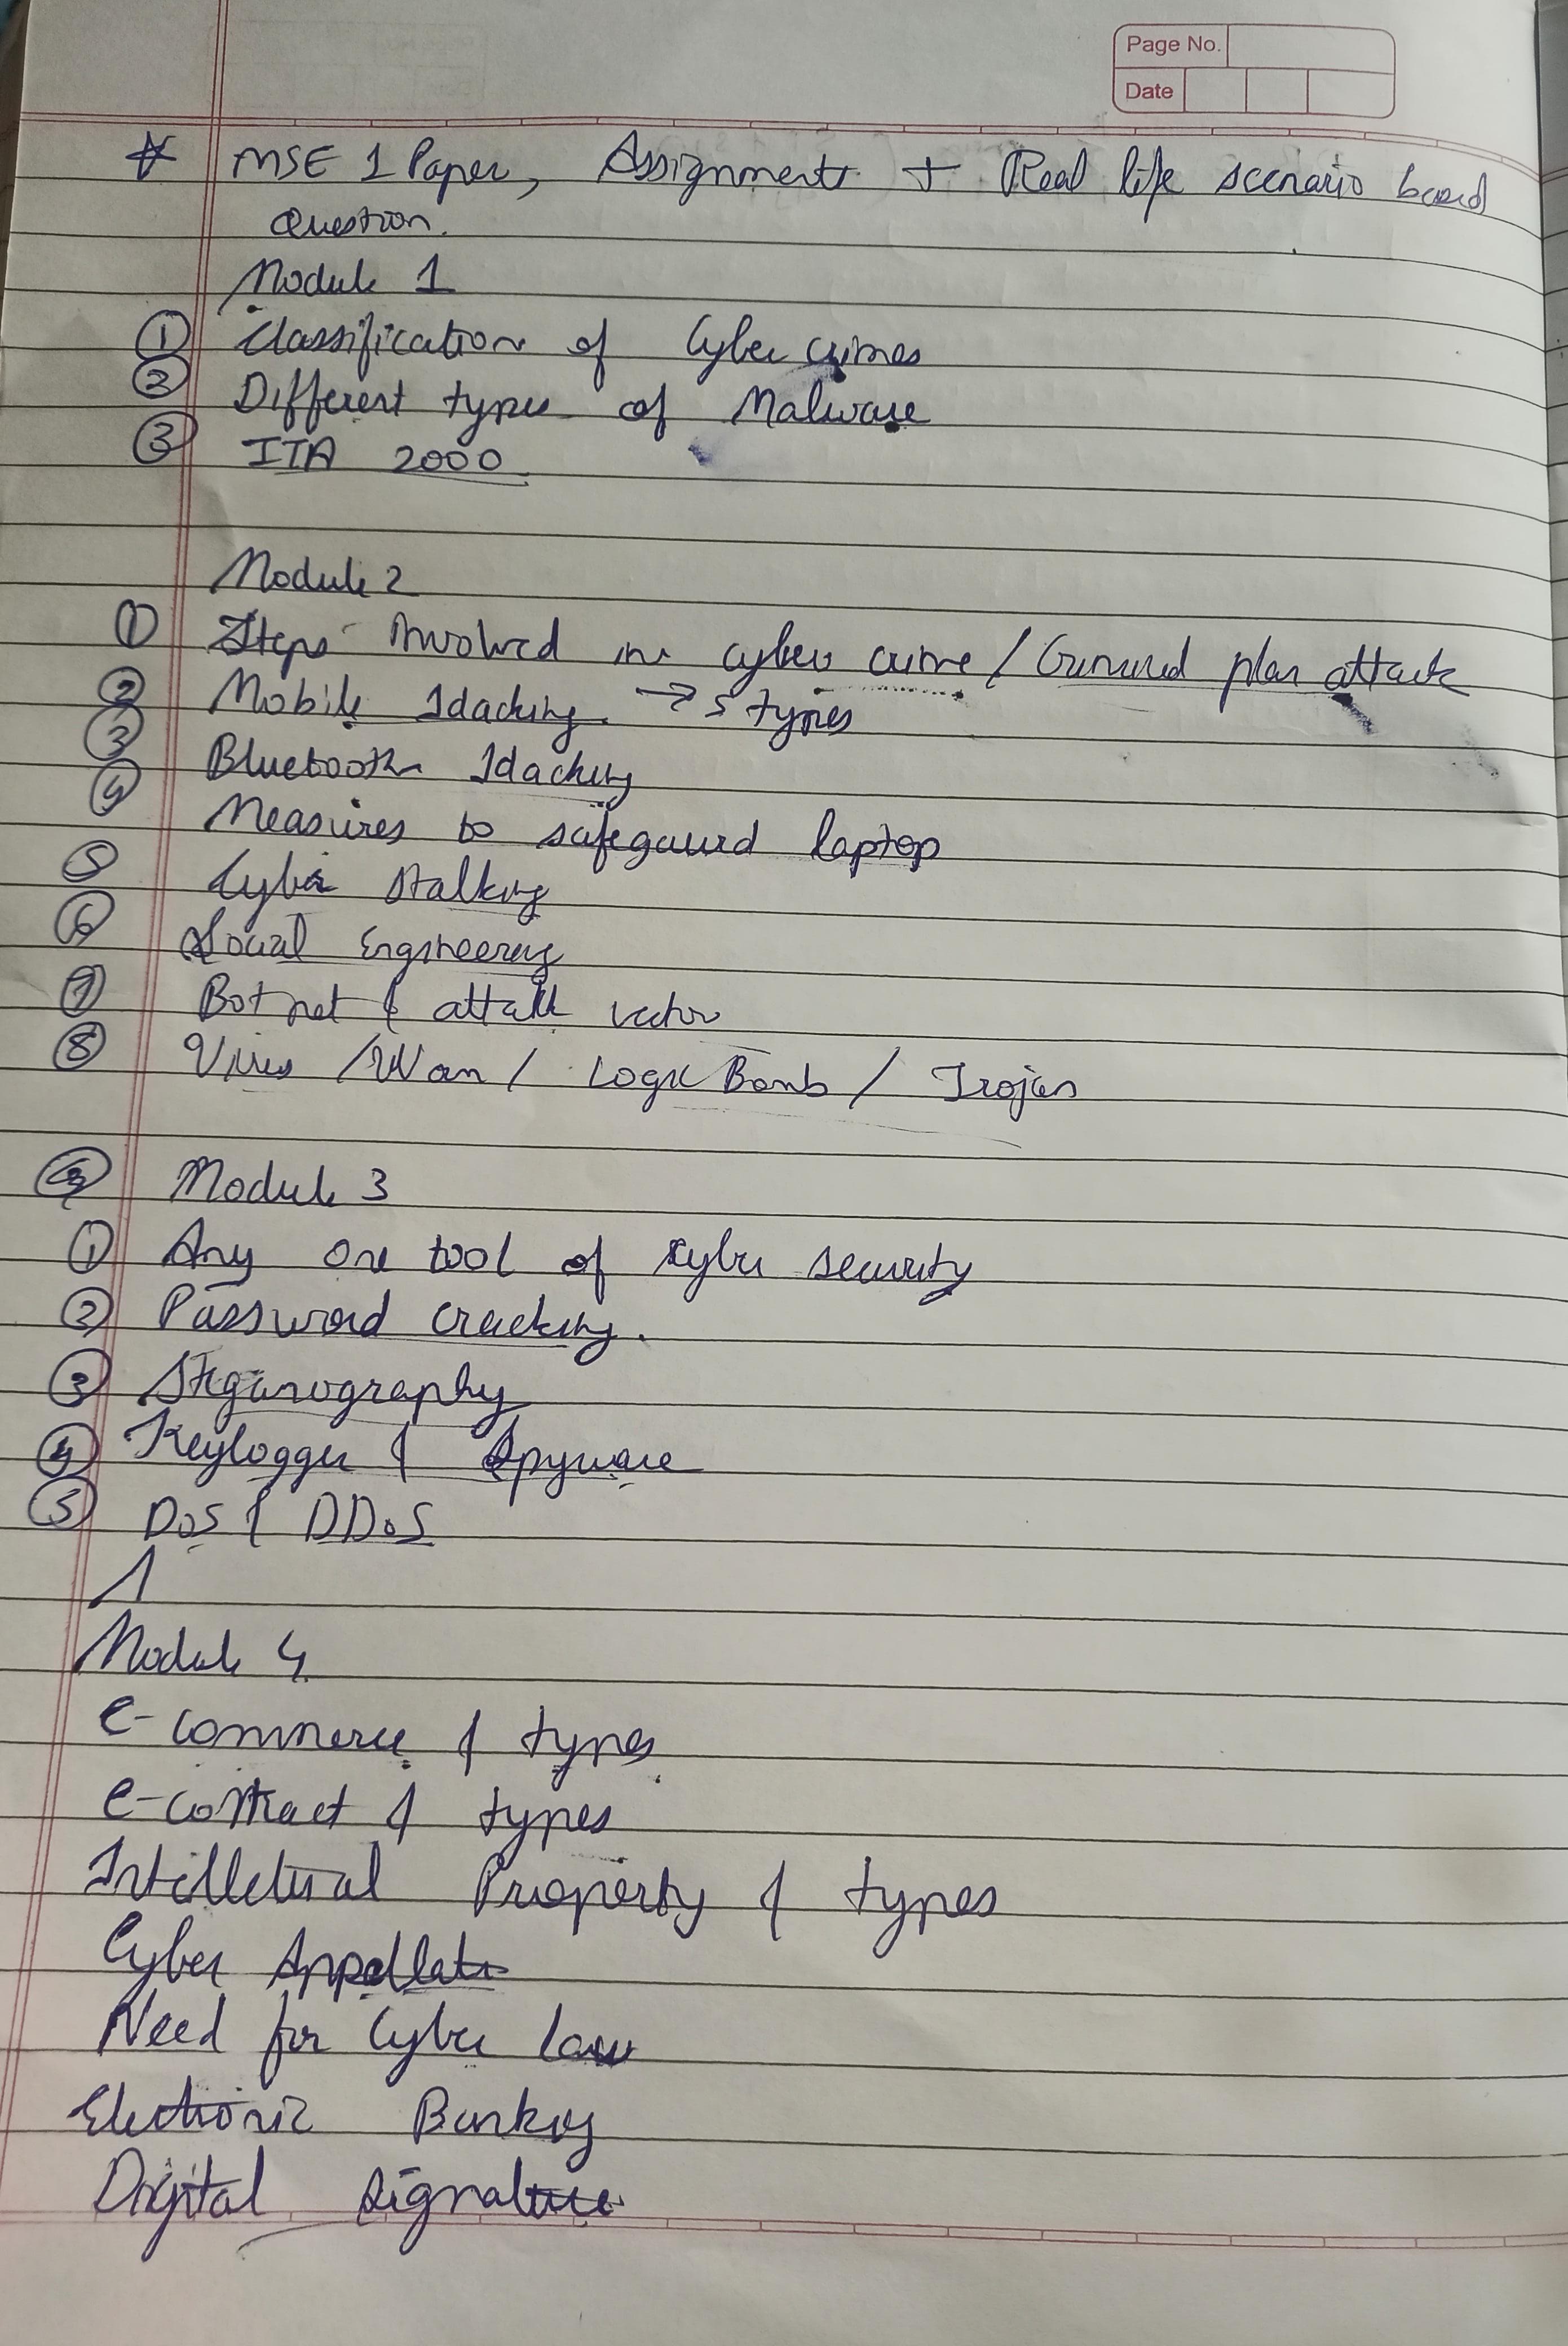 Page No.
Date
* MSE 1 Paper, Assignments + Real life scenario based
Question.
Module 1
① Classification of Cyber crimes
② Different types of Malware
③ ITA 2000
Module 2
① Steps Involved in cyber crime / Criminal plan attack
② Mobile Hacking. → 5 types
③ Bluetooth Hacking
④ Measures to safegaurd laptop
⑤ Cyber Stalking
⑥ Social Engineering
⑦ Bot net & attack vector
⑧ Virus / Worm / Logic Bomb / Trojan
Module 3
① Any one tool of cyber security
② Password cracking.
③ Steganography
④ Keylogger & Spyware
⑤ DoS & DDoS
Module 4
e-commerce & types
e-contract & types
Intelletual Property & types
Cyber Appellate
Need for Cyber law
Electronic Banking
Digital Signature